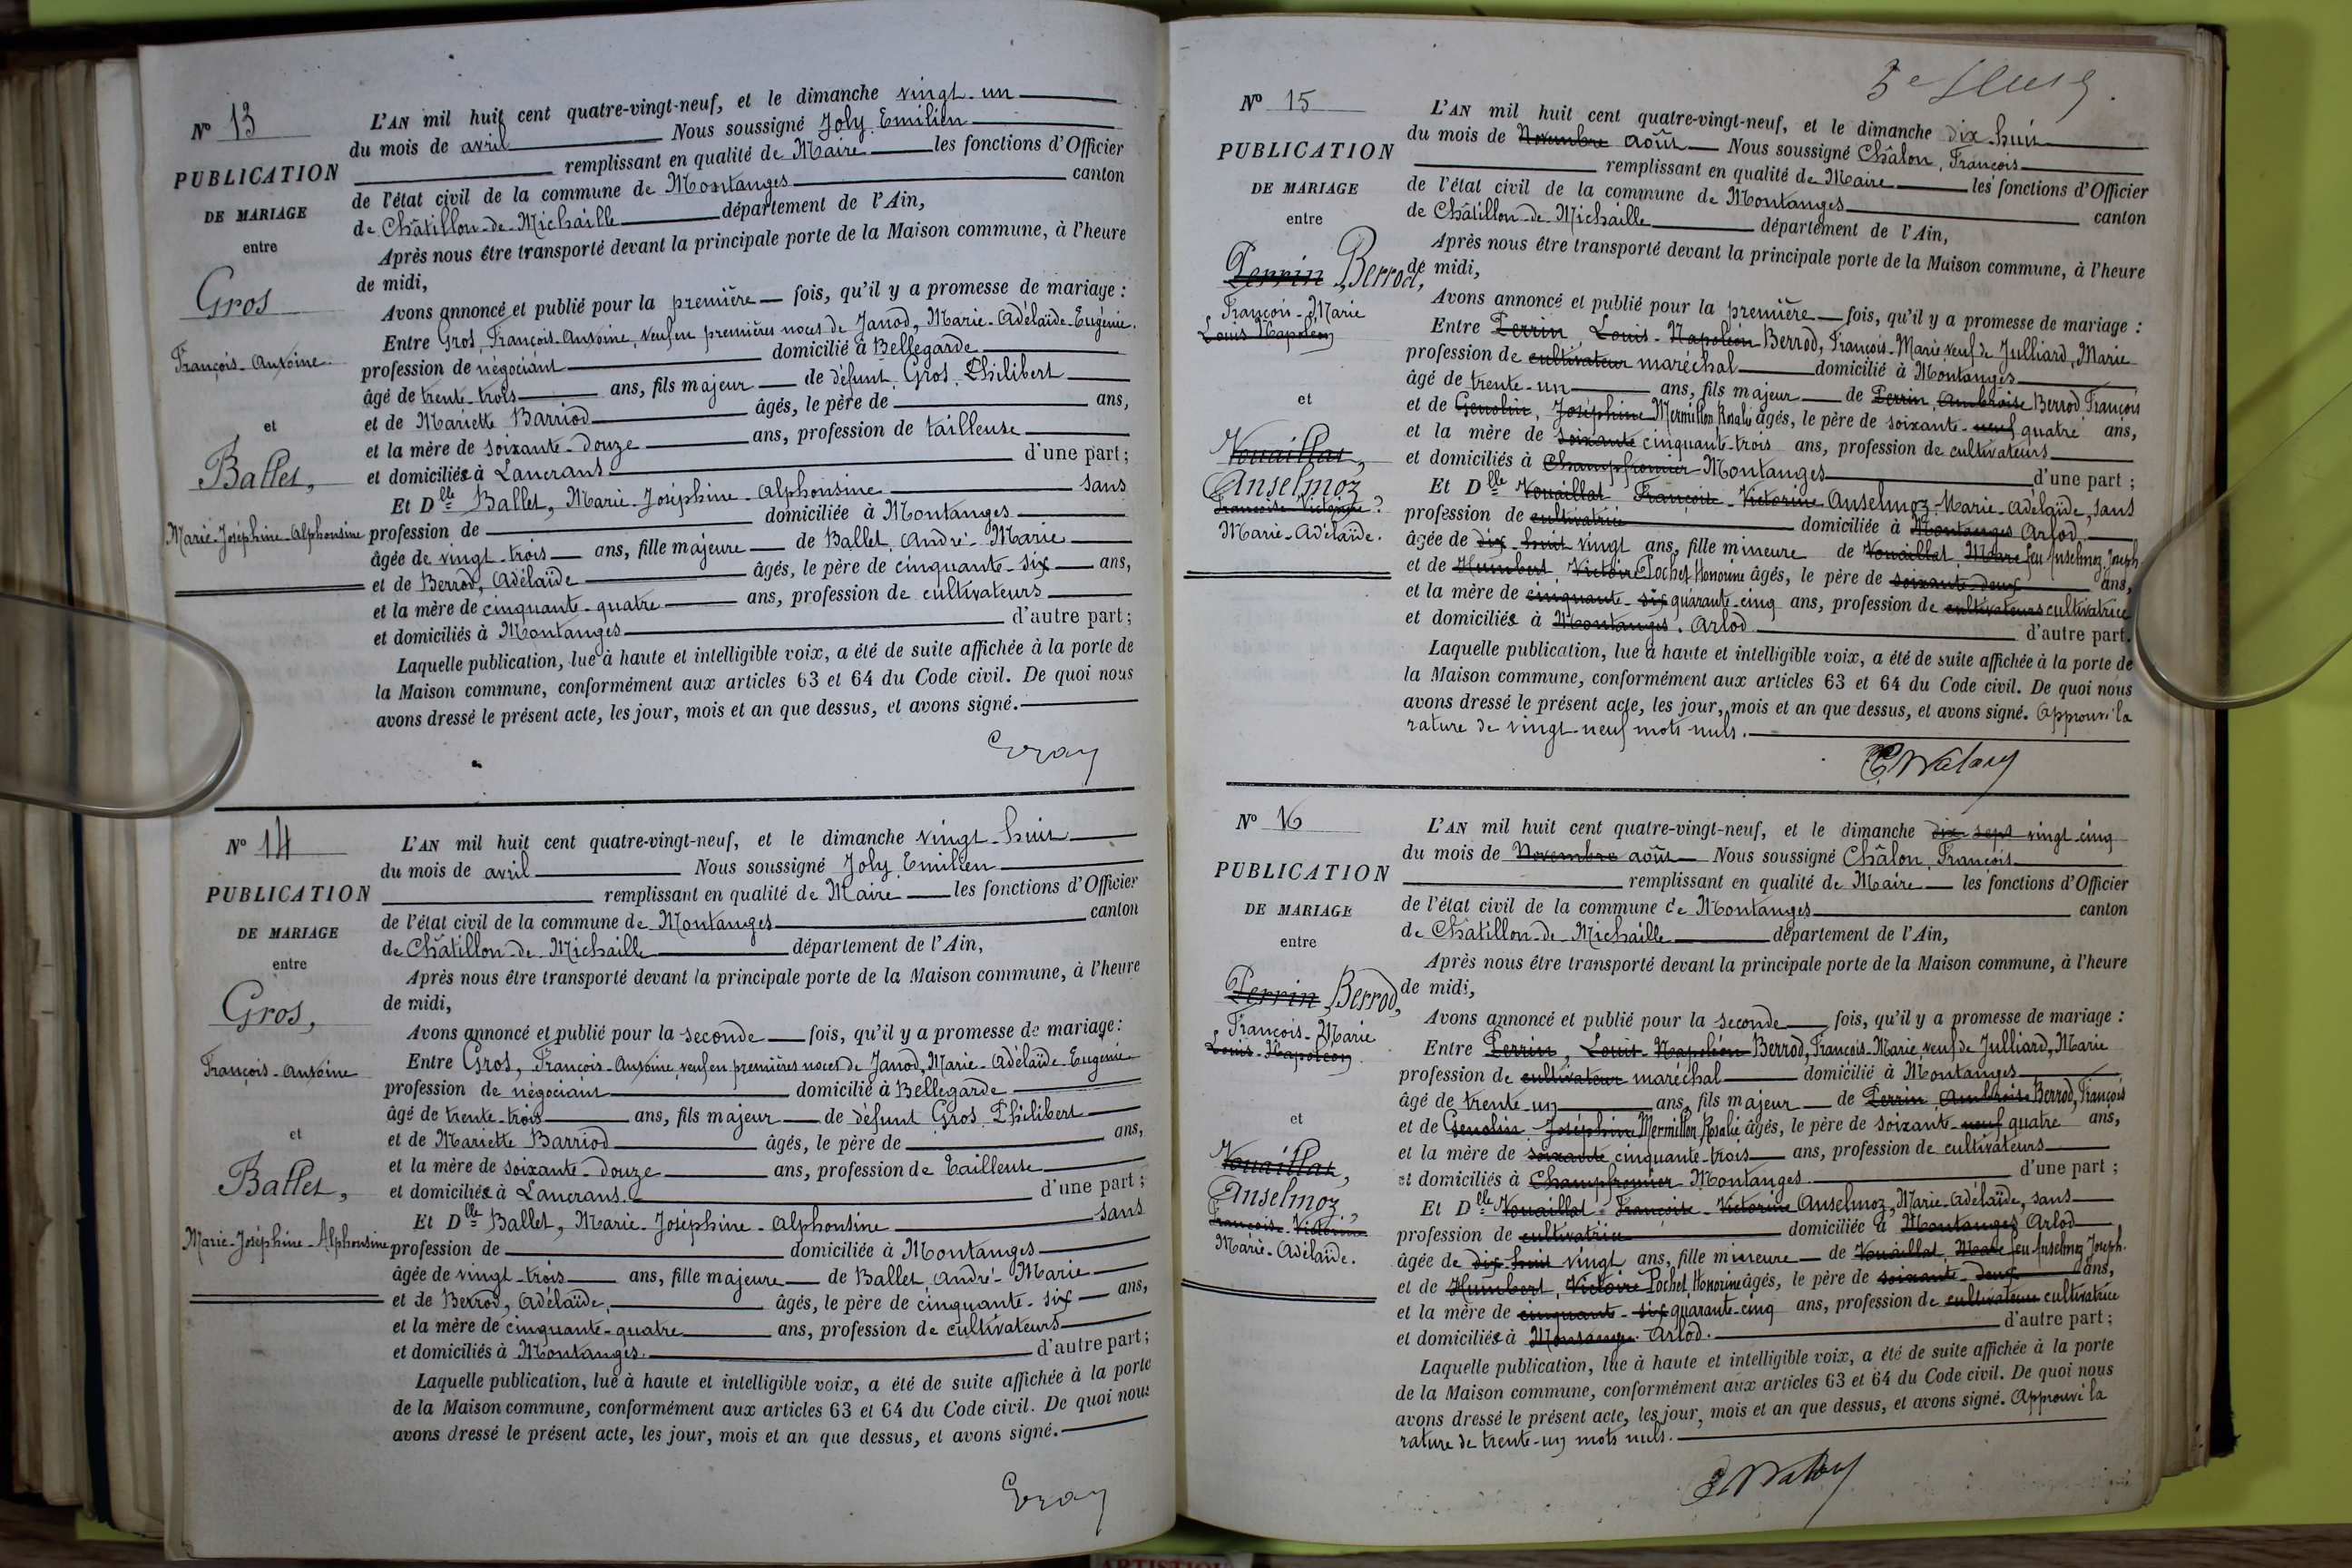 Nº 13
PUBLICATION
DE MARIAGE
entre
Gros
François-Antoine
et
Ballet,
Marie-Joséphine-Alphonsine
L'AN mil huit cent quatre-vingt-neuf, et le dimanche vingt-un
du mois de avril Nous soussigné Joly, Emilien
remplissant en qualité de Maire les fonctions d'Officier
de l'état civil de la commune de Montanges canton
de Châtillon-de-Michaille département de l'Ain,
Après nous être transporté devant la principale porte de la Maison commune, à l'heure
de midi,
Avons annoncé et publié pour la première fois, qu'il y a promesse de mariage :
Entre Gros, François-Antoine, veuf en premières noces de Janod, Marie-Adélaïde-Eugénie.
profession de négociant domicilié à Bellegarde
âgé de trente-trois ans, fils majeur de défunt Gros, Philibert
et de Mariette Barriod âgés, le père de ans,
et la mère de soixante-douze ans, profession de tailleuse
et domiciliés à Lancrans d'une part ;
Et Dlle Ballet, Marie-Joséphine-Alphonsine sans
profession de domiciliée à Montanges
âgée de vingt-trois ans, fille majeure de Ballet, André-Marie
et de Berrod, Adélaïde âgés, le père de cinquante-six ans,
et la mère de cinquante-quatre ans, profession de cultivateurs
et domiciliés à Montanges d'autre part ;
Laquelle publication, lue à haute et intelligible voix, a été de suite affichée à la porte de
la Maison commune, conformément aux articles 63 et 64 du Code civil. De quoi nous
avons dressé le présent acte, les jour, mois et an que dessus, et avons signé.
Nº 14
PUBLICATION
DE MARIAGE
entre
Gros,
François-Antoine
et
Ballet,
Marie-Joséphine-Alphonsine
L'AN mil huit cent quatre-vingt-neuf, et le dimanche vingt-huit
du mois de avril Nous soussigné Joly, Emilien
remplissant en qualité de Maire les fonctions d'Officier
de l'état civil de la commune de Montanges canton
de Châtillon-de-Michaille département de l'Ain,
Après nous être transporté devant la principale porte de la Maison commune, à l'heure
de midi,
Avons annoncé et publié pour la seconde fois, qu'il y a promesse de mariage :
Entre Gros, François-Antoine, veuf en premières noces de Janod, Marie-Adélaïde-Eugénie
profession de négociant domicilié à Bellegarde
âgé de trente-trois ans, fils majeur de défunt Gros, Philibert
et de Mariette Barriod âgés, le père de ans,
et la mère de soixante-douze ans, profession de tailleuse
et domiciliés à Lancrans. d'une part ;
Et Dlle Ballet, Marie-Joséphine-Alphonsine sans
profession de domiciliée à Montanges
âgée de vingt-trois ans, fille majeure de Ballet, André-Marie
et de Berrod, Adélaïde, âgés, le père de cinquante-six ans,
et la mère de cinquante-quatre ans, profession de cultivateurs
et domiciliés à Montanges. d'autre part ;
Laquelle publication, lue à haute et intelligible voix, a été de suite affichée à la porte
de la Maison commune, conformément aux articles 63 et 64 du Code civil. De quoi nous
avons dressé le présent acte, les jour, mois et an que dessus, et avons signé.
Nº 15
PUBLICATION
DE MARIAGE
entre
Perrin Berrod,
François-Marie
Louis-Napoléon
et
Vouaillat,
Anselmoz
Françoise-Victorine
Marie-Adélaïde.
L'AN mil huit cent quatre-vingt-neuf, et le dimanche dix-huit
du mois de Novembre août Nous soussigné Châlon, François
remplissant en qualité de Maire les fonctions d'Officier
de l'état civil de la commune de Montanges canton
de Châtillon-de-Michaille département de l'Ain,
Après nous être transporté devant la principale porte de la Maison commune, à l'heure
de midi,
Avons annoncé et publié pour la première fois, qu'il y a promesse de mariage :
Entre Perrin, Louis-Napoléon Berrod, François-Marie veuf de Julliard, Marie
profession de cultivateur maréchal domicilié à Montanges
âgé de trente-un ans, fils majeur de Perrin, Ambroise Berrod, François
et de Genolin, Joséphine Mermillon Rosalie âgés, le père de soixante-neuf quatre ans,
et la mère de soixante cinquante-trois ans, profession de cultivateurs
et domiciliés à Champfromier Montanges d'une part ;
Et Dlle Vouaillat Françoise-Victorine Anselmoz, Marie-Adélaïde, sans
profession de cultivatrice domiciliée à Montanges Arlod
âgée de dix-huit vingt ans, fille mineure de Vouaillat, Marie feu Anselmoz, Joseph
et de Humbert, Victoire Pochet Honorine âgés, le père de soixante-deux ans,
et la mère de cinquante-six quarante-cinq ans, profession de cultivateurs cultivatrice
et domiciliés à Montanges. Arlod d'autre part.
Laquelle publication, lue à haute et intelligible voix, a été de suite affichée à la porte de
la Maison commune, conformément aux articles 63 et 64 du Code civil. De quoi nous
avons dressé le présent acte, les jour, mois et an que dessus, et avons signé. Approuvé la
rature de vingt-neuf mots nuls.
Nº 16
PUBLICATION
DE MARIAGE
entre
Perrin Berrod,
François-Marie
Louis-Napoléon
et
Vouaillat,
Anselmoz,
Françoise-Victorine
Marie-Adélaïde.
L'AN mil huit cent quatre-vingt-neuf, et le dimanche dix-sept vingt-cinq
du mois de Novembre août Nous soussigné Châlon, François
remplissant en qualité de Maire les fonctions d'Officier
de l'état civil de la commune de Montanges canton
de Châtillon-de-Michaille département de l'Ain,
Après nous être transporté devant la principale porte de la Maison commune, à l'heure
de midi,
Avons annoncé et publié pour la seconde fois, qu'il y a promesse de mariage :
Entre Perrin, Louis-Napoléon Berrod, François-Marie, veuf de Julliard, Marie
profession de cultivateur maréchal domicilié à Montanges
âgé de trente-un ans, fils majeur de Perrin Ambroise Berrod, François
et de Genolin, Joséphine Mermillon, Rosalie âgés, le père de soixante-neuf quatre ans,
et la mère de soixante cinquante-trois ans, profession de cultivateurs
et domiciliés à Champfromier Montanges. d'une part ;
Et Dlle Vouaillat Françoise-Victorine Anselmoz, Marie-Adélaïde, sans
profession de cultivatrice domiciliée à Montanges Arlod
âgée de dix-huit vingt ans, fille mineure de Vouaillat, Marie feu Anselmoz Joseph.
et de Humbert, Victoire Pochet, Honorine âgés, le père de soixante-deux ans,
et la mère de cinquante-six quarante-cinq ans, profession de cultivateurs cultivatrice
et domiciliés à Montanges. Arlod. d'autre part ;
Laquelle publication, lue à haute et intelligible voix, a été de suite affichée à la porte
de la Maison commune, conformément aux articles 63 et 64 du Code civil. De quoi nous
avons dressé le présent acte, les jour, mois et an que dessus, et avons signé. Approuvé la
rature de trente-un mots nuls.